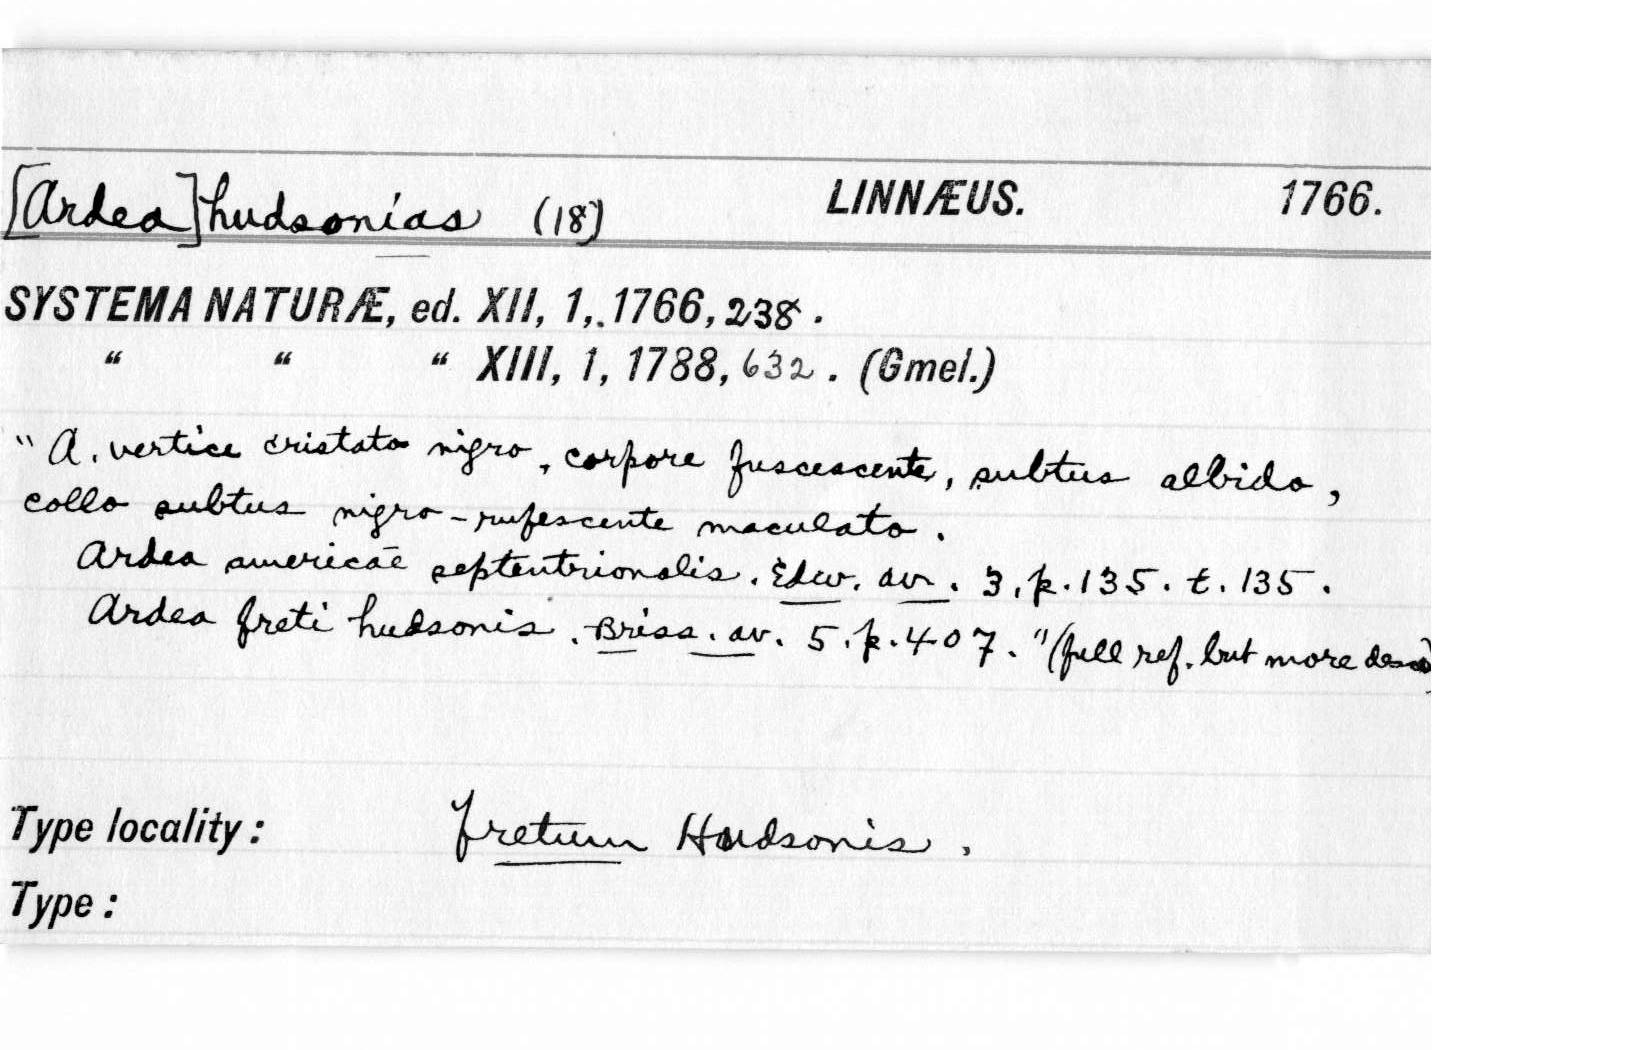 [Ardea] hudsonias (18) LINNÆUS. 1766.
SYSTEMA NATURÆ, ed. XII, 1, 1766, 238.
“ “ “ XIII, 1, 1788, 632. (Gmel.)
"A. vertice cristato nigro, corpore fuscescente, subtus albido,
collo subtus nigro-rufescente maculato.
Ardea americae septentrionalis. Edw. av. 3, p. 135. t. 135.
Ardea freti hudsonis. Briss. av. 5. p. 407." (full ref. but more
Type locality: fretum Hudsonis.
Type: